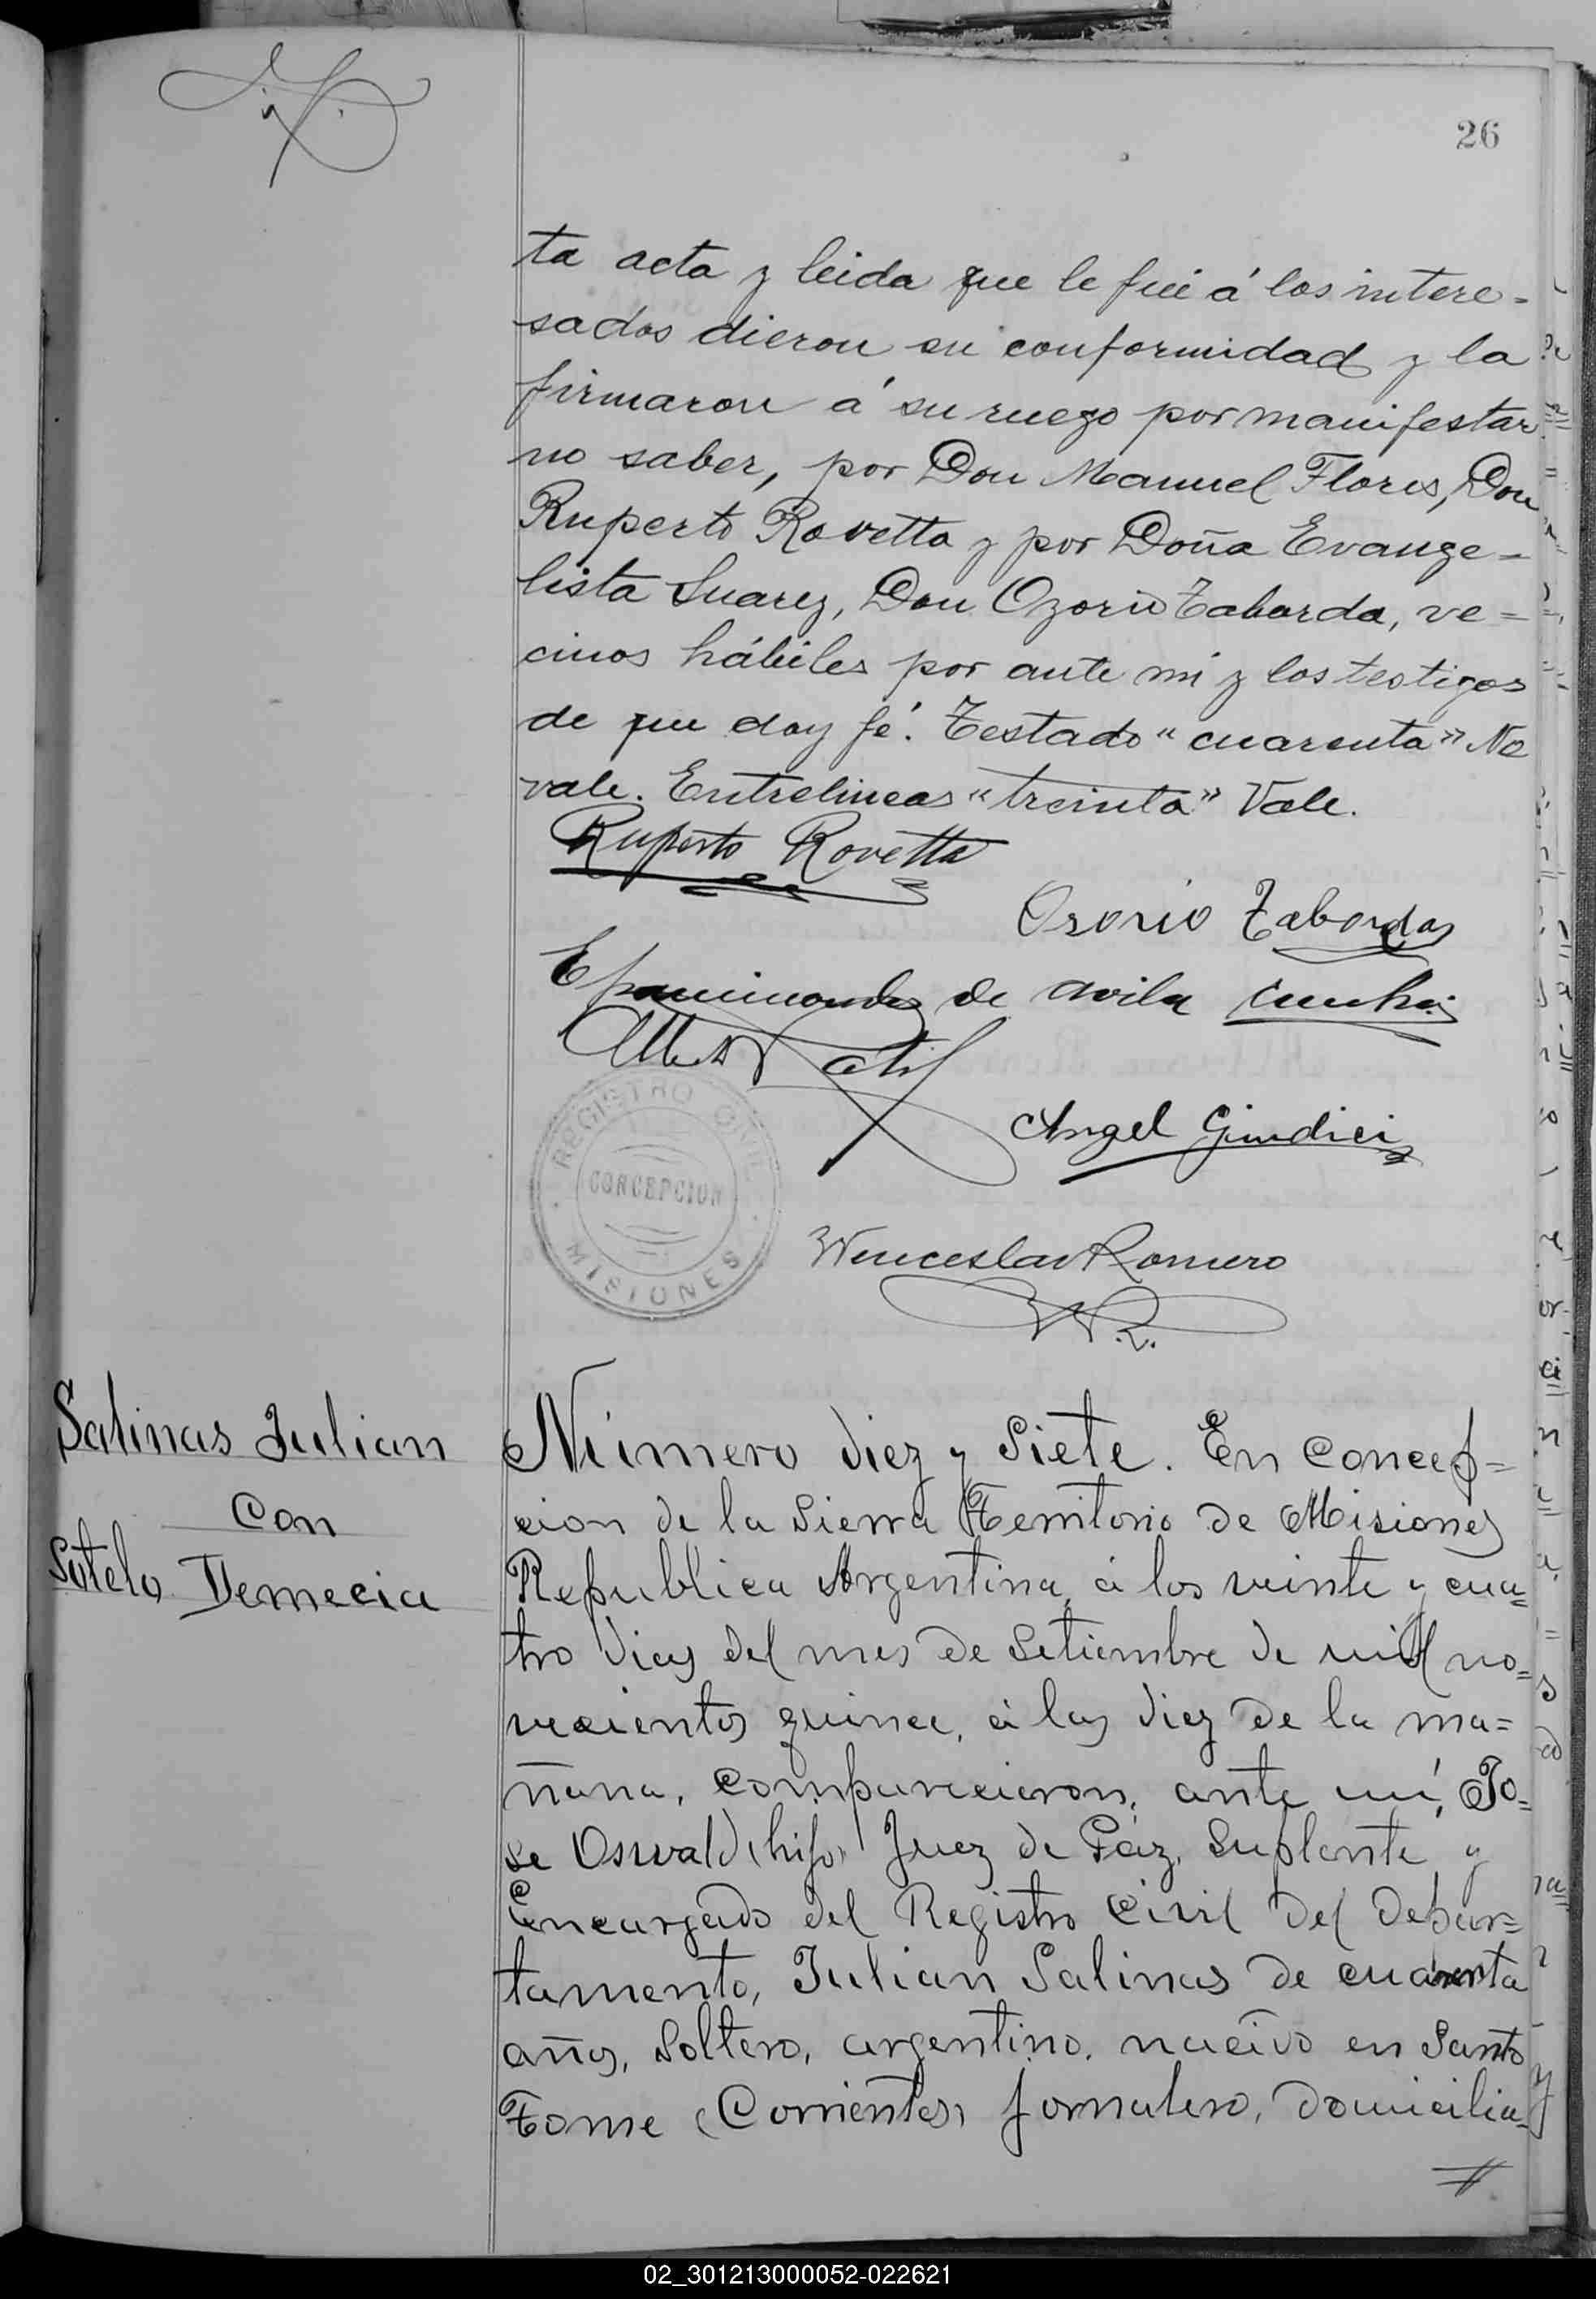 26
ta acta y leida que le fué á los intere-
sados dieron su conformidad y la
firmaron á su ruego por manifestar
no saber, por Don Manuel Flores, Don
Ruperto Rovetta y por Doña Evange-
lista Suarez, Don Ozorio Taborda, ve-
cinos hábiles por ante mi y los testigos
de que doy fé. Testado "cuarenta" No
vale. Entrelineas "treinta" Vale.
Ruperto Rovetta
Osorio Taborda
Epaminondas de avila cunha
Angel Giudici
REGISTRO CIVIL
CONCEPCION
MISIONES
Wenceslao Romero
W R.
Salinas Julian
con
Sotelo Demecia
Número diez y Siete. En concep=
cion de la Sierra Territorio de Misiones
Republica Argentina, á los veinte y cua=
tro dias del mes de Setiembre de mil no=
vecientos quince, á las diez de la ma=
ñana, comparecieron, ante mí, Jo=
se Oswald (hijo) Juez de Paz, Suplente y
Encargado del Registro Civil del Depar=
tamento, Julian Salinas de cuarenta
años, Soltero, argentino, nacido en Santo
Tome (Corrientes) jornalero, domicilia=
02_301213000052-022621